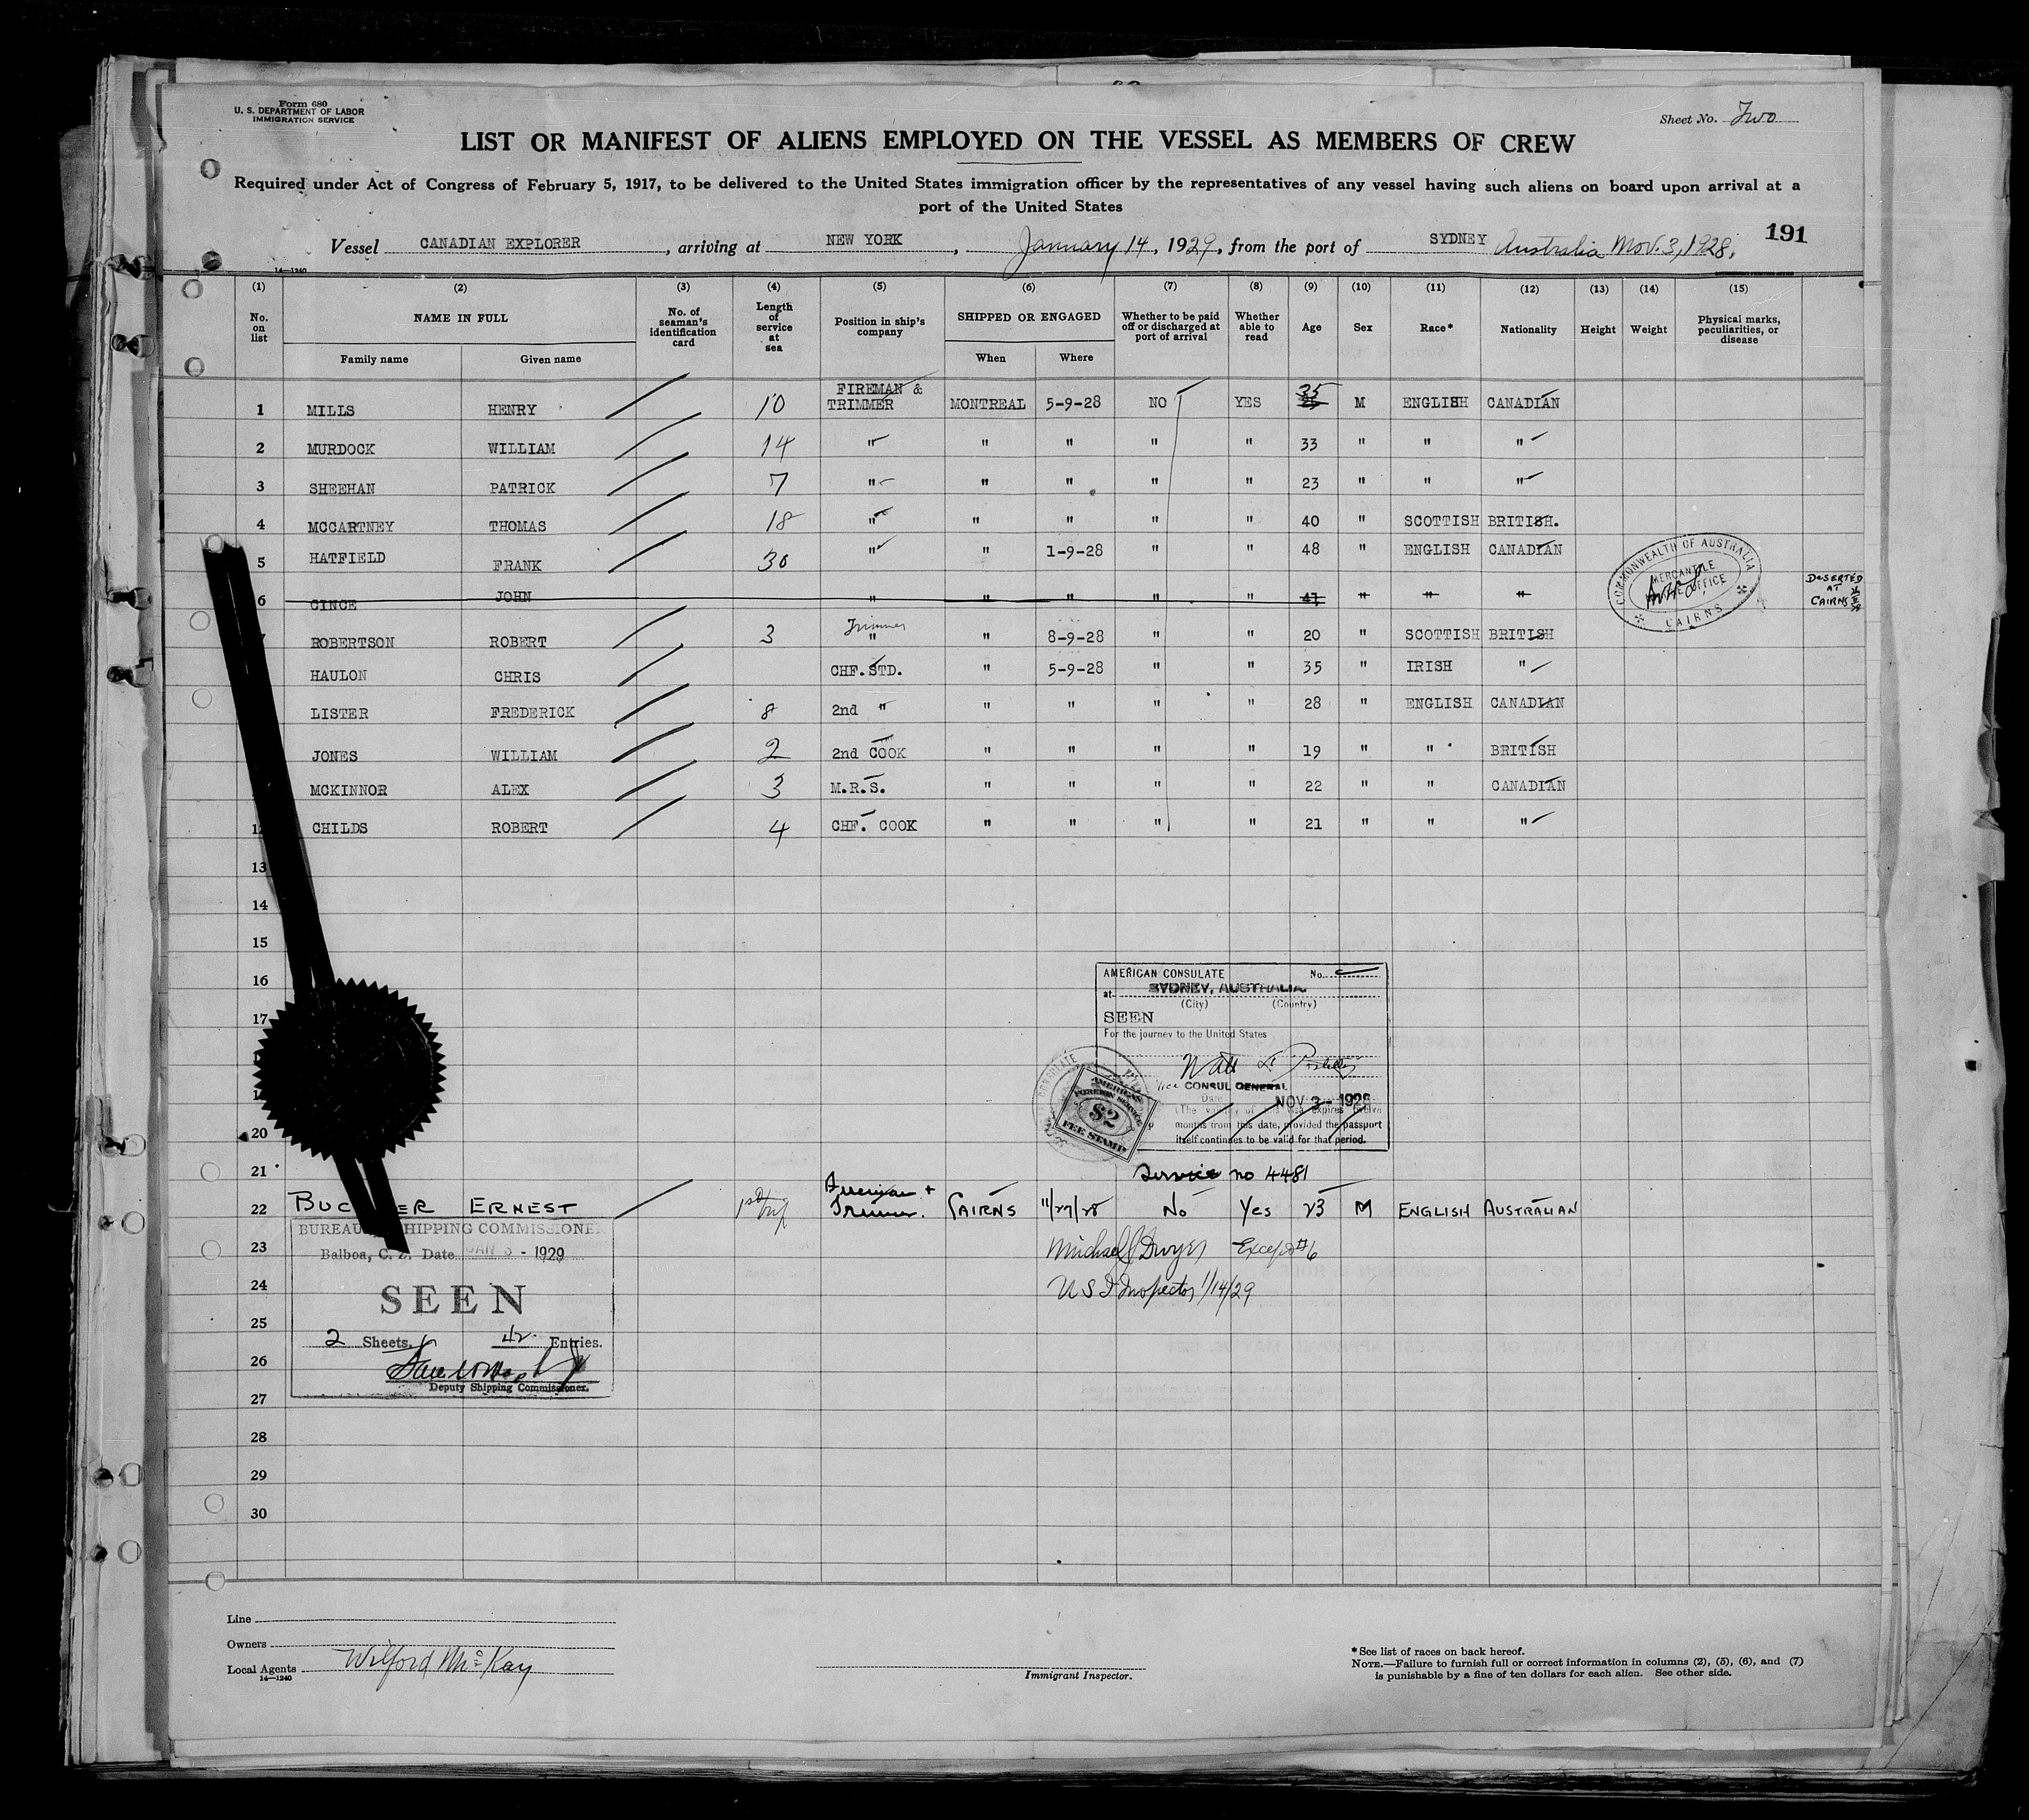 Form 680
U. S. DEPARTMENT OF LABOR
IMMIGRATION SERVICE
Sheet No. Two
LIST OR MANIFEST OF ALIENS EMPLOYED ON THE VESSEL AS MEMBERS OF CREW
Required under Act of Congress of February 5, 1917, to be delivered to the United States immigration officer by the representatives of any vessel having such aliens on board upon arrival at a
port of the United States
191
Vessel CANADIAN EXPLORER, arriving at NEW YORK, January 14, 1929, from the port of SYDNEY Australia Nov. 3, 1928.
14—1240
(1) (2) (3) (4) (5) (6) (7) (8) (9) (10) (11) (12) (13) (14) (15)
No. on list NAME IN FULL Family name Given name No. of seaman's identification card Length of service at sea Position in ship's company SHIPPED OR ENGAGED When Where Whether to be paid off or discharged at port of arrival Whether able to read Age Sex Race* Nationality Height Weight Physical marks, peculiarities, or disease
1 MILLS HENRY 10 FIREMAN & TRIMMER MONTREAL 5-9-28 NO YES 35 M ENGLISH CANADIAN
2 MURDOCK WILLIAM 14 " " " " " 33 " " "
3 SHEEHAN PATRICK 7 " " " " " 23 " " "
4 MCCARTNEY THOMAS 18 " " " " " 40 " SCOTTISH BRITISH.
5 HATFIELD FRANK 30 " " 1-9-28 " " 48 " ENGLISH CANADIAN
6 CINCE JOHN " " " " " 41 " " " DESERTED AT CAIRNS
COMMONWEALTH OF AUSTRALIA
MERCANTILE
OFFICE
CAIRNS
7 ROBERTSON ROBERT 3 Trimmer " " 8-9-28 " " 20 " SCOTTISH BRITISH
HAULON CHRIS CHF. STD. " 5-9-28 " " 35 " IRISH "
LISTER FREDERICK 8 2nd " " " " " 28 " ENGLISH CANADIAN
JONES WILLIAM 2 2nd COOK " " " " 19 " " BRITISH
MCKINNOR ALEX 3 M.R.S. " " " " 22 " " CANADIAN
12 CHILDS ROBERT 4 CHF. COOK " " " " 21 " " "
13
14
15
16
17
20
21
AMERICAN CONSULATE No.
at SYDNEY, AUSTRALIA.
(City) (Country)
SEEN
For the journey to the United States
Vice CONSUL GENERAL
Date NOV 3 - 1928
(The validity of this visa expires twelve
months from this date, provided the passport
itself continues to be valid for that period.
CONSULATE
AMERICAN
FOREIGN SERVICE
$2
FEE STAMP
Service no 4481
22 BUC ER ERNEST 1st trip Fireman + Trimmer. CAIRNS 11/27/28 No Yes 23 M ENGLISH AUSTRALIAN
BUREAU SHIPPING COMMISSIONER
Balboa, C. Z. Date JAN 3 - 1929
SEEN
2 Sheets, 42 Entries.
Deputy Shipping Commissioner.
23 Michael J Dwyer Except #6
24 U S I Inspector 1/14/29
25
26
27
28
29
30
Line
Owners
Local Agents Wilford McKay
14—1240
Immigrant Inspector.
*See list of races on back hereof.
NOTE.—Failure to furnish full or correct information in columns (2), (5), (6), and (7)
is punishable by a fine of ten dollars for each alien. See other side.